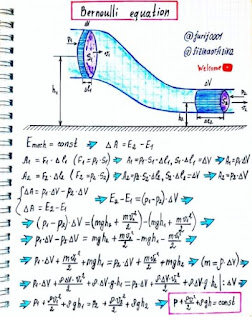 Bernoulli equation
@jurij0001
@fizikaofizika
Welcome
ΔV
p₁
S₁
v₁
Δl₁
h₁
ΔV
p₂
S₂
h₂
Δl₂
Emech = const ⇒ ΔA = E₂ - E₁
A₁ = F₁·Δl₁ (F₁ = p₁·S₁) ⇒ A₁ = p₁·S₁·Δl₁, S₁·Δl₁ = ΔV ⇒ A₁ = p₁·ΔV
A₂ = F₂·Δl₂ (F₂ = p₂·S₂) ⇒ A₂ = p₂·S₂·Δl₂, S₂·Δl₂ = ΔV ⇒ A₂ = p₂·ΔV
{ΔA = p₁·ΔV - p₂·ΔV
ΔA = E₂ - E₁ ⇒ E₂ - E₁ = (p₁ - p₂)·ΔV ⇒
⇒ (p₁ - p₂)·ΔV = (mgh₂ + mv₂²/2) - (mgh₁ + mv₁²/2) ⇒
⇒ p₁·ΔV - p₂·ΔV = mgh₂ + mv₂²/2 - mgh₁ - mv₁²/2 ⇒
⇒ p₁·ΔV + mv₁²/2 + mgh₁ = p₂·ΔV + mv₂²/2 + mgh₂ ⇒ (m = ρ·ΔV) ⇒
⇒ p₁·ΔV + ρ·ΔV·v₁²/2 + ρ·ΔV·g·h₁ = p₂·ΔV + ρ·ΔV·v₂²/2 + ρ·ΔV·g·h₂ |:ΔV ⇒
⇒ p₁ + ρv₁²/2 + ρgh₁ = p₂ + ρv₂²/2 + ρgh₂ ⇒ p + ρv²/2 + ρgh = const